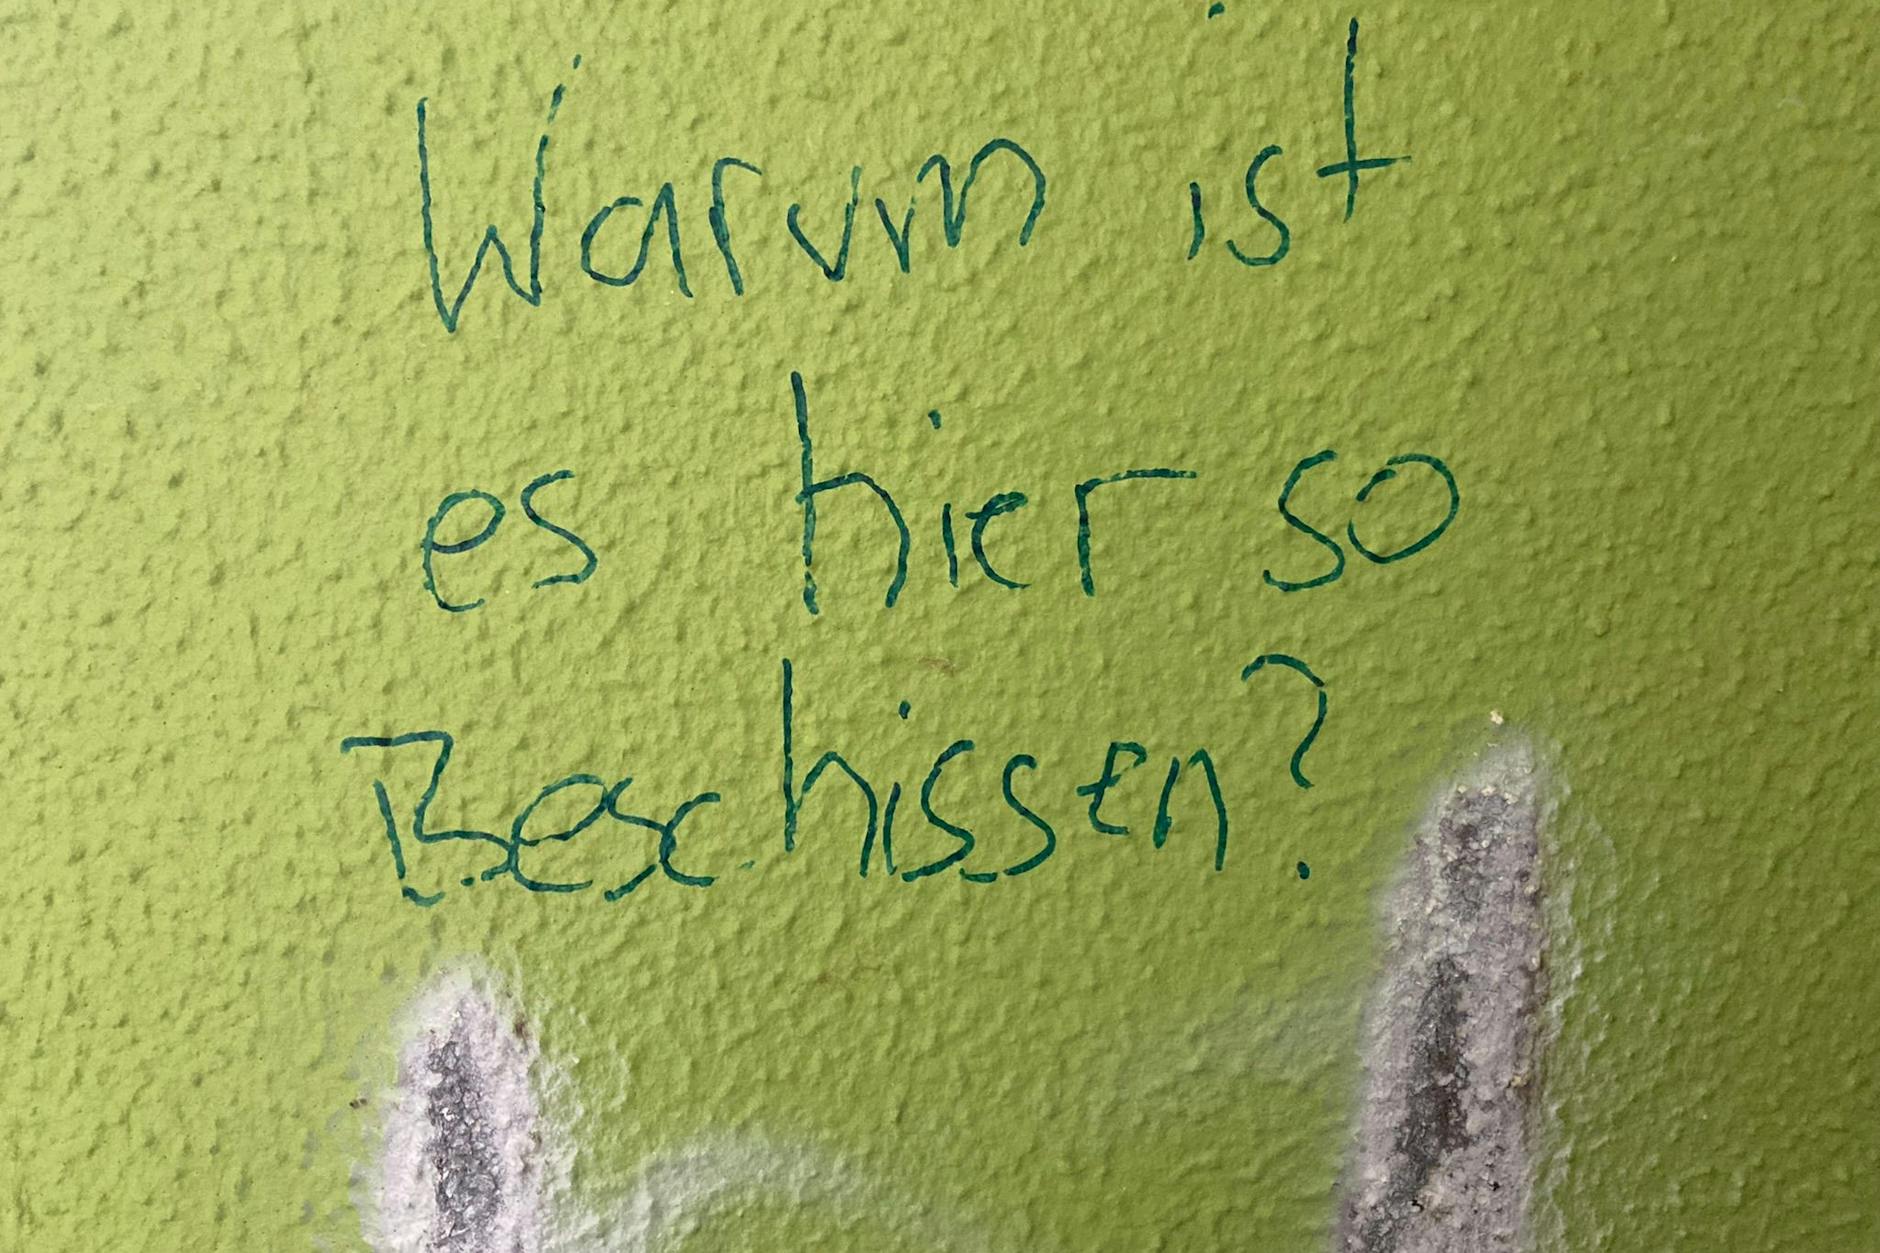 Warum ist
es hier so
Beschissen?